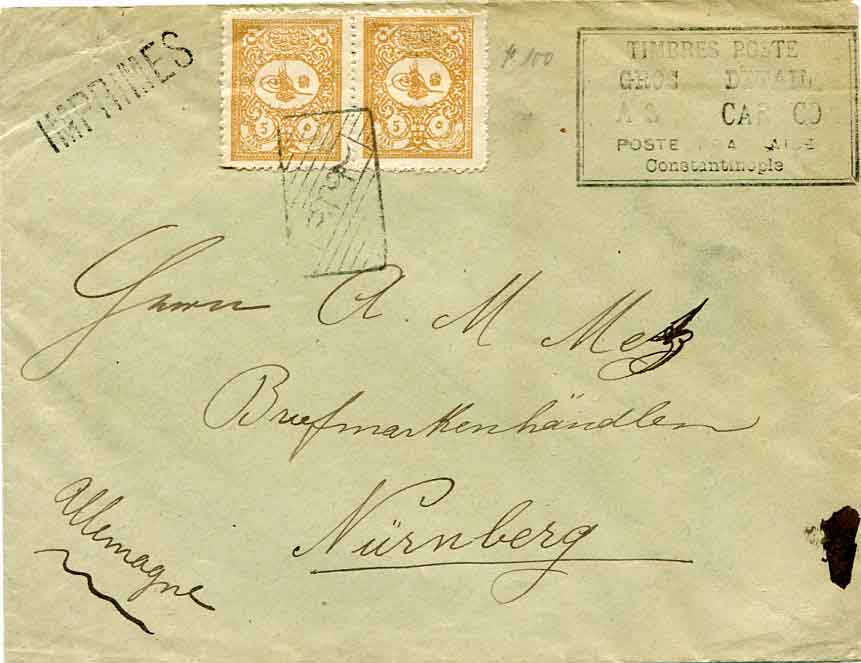 IMPRIMES
5 ٥
5 ٥
100
TIMBRES POSTE
GROS DETAIL
A S
POSTE
Constantinople
Herrn A. M Metz
Briefmarkenhändler
Nürnberg
Allemagne